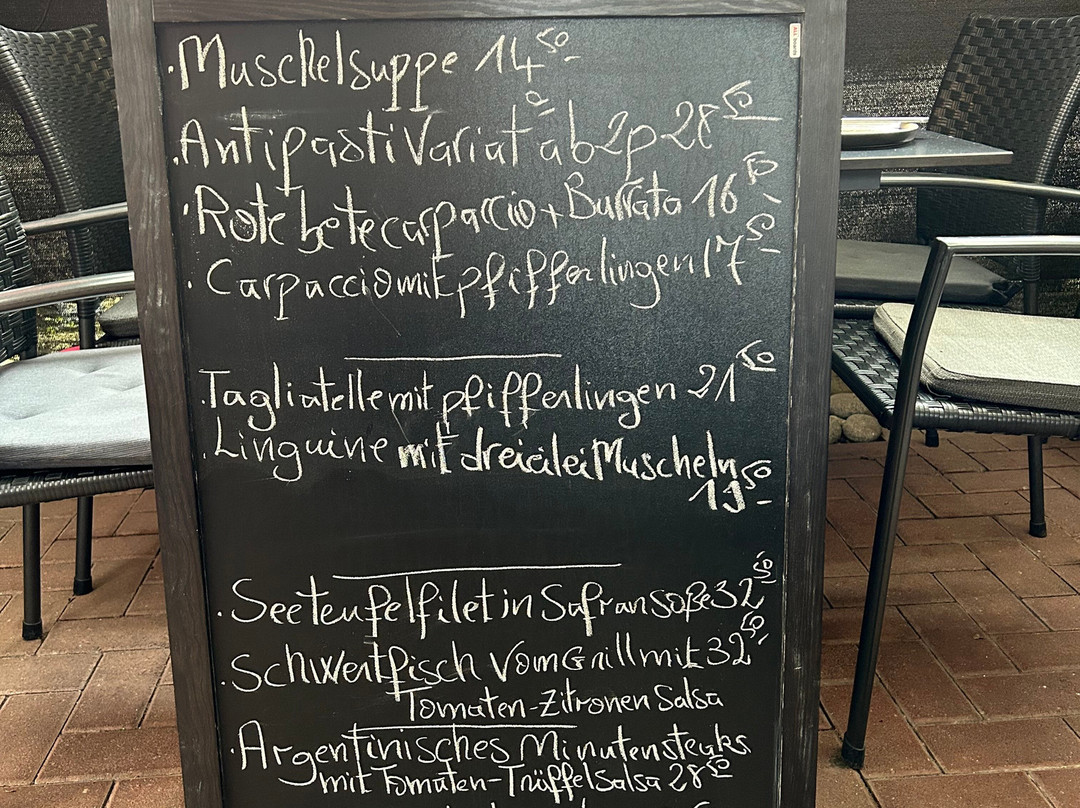 ·Muschelsuppe 14⁵⁰-
·Antipasti Variat° ab 2p 28⁵⁰
·Rote betecarpaccio + Burrata 16⁵⁰-
·Carpaccio mit pfifferlingen 17⁵⁰-
·Tagliatelle mit pfifferlingen 21⁵⁰
·Linguine mit dreierlei Muscheln
19⁵⁰-
·Seeteufelfilet in Safransoße 32⁵⁰
·Schwertfisch vom Grill mit 32⁵⁰-
Tomaten-Zitronen Salsa
·Argentinisches Minutensteaks
mit Tomaten-Trüffel Salsa 28⁵⁰